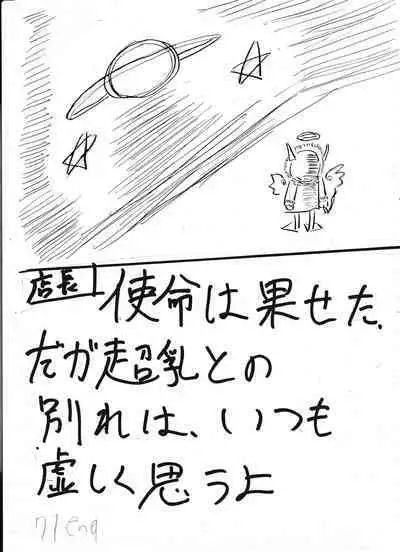 店長 使命は果せた.
だが超乳との
別れは、いつも
虚しく思うよ
71 end